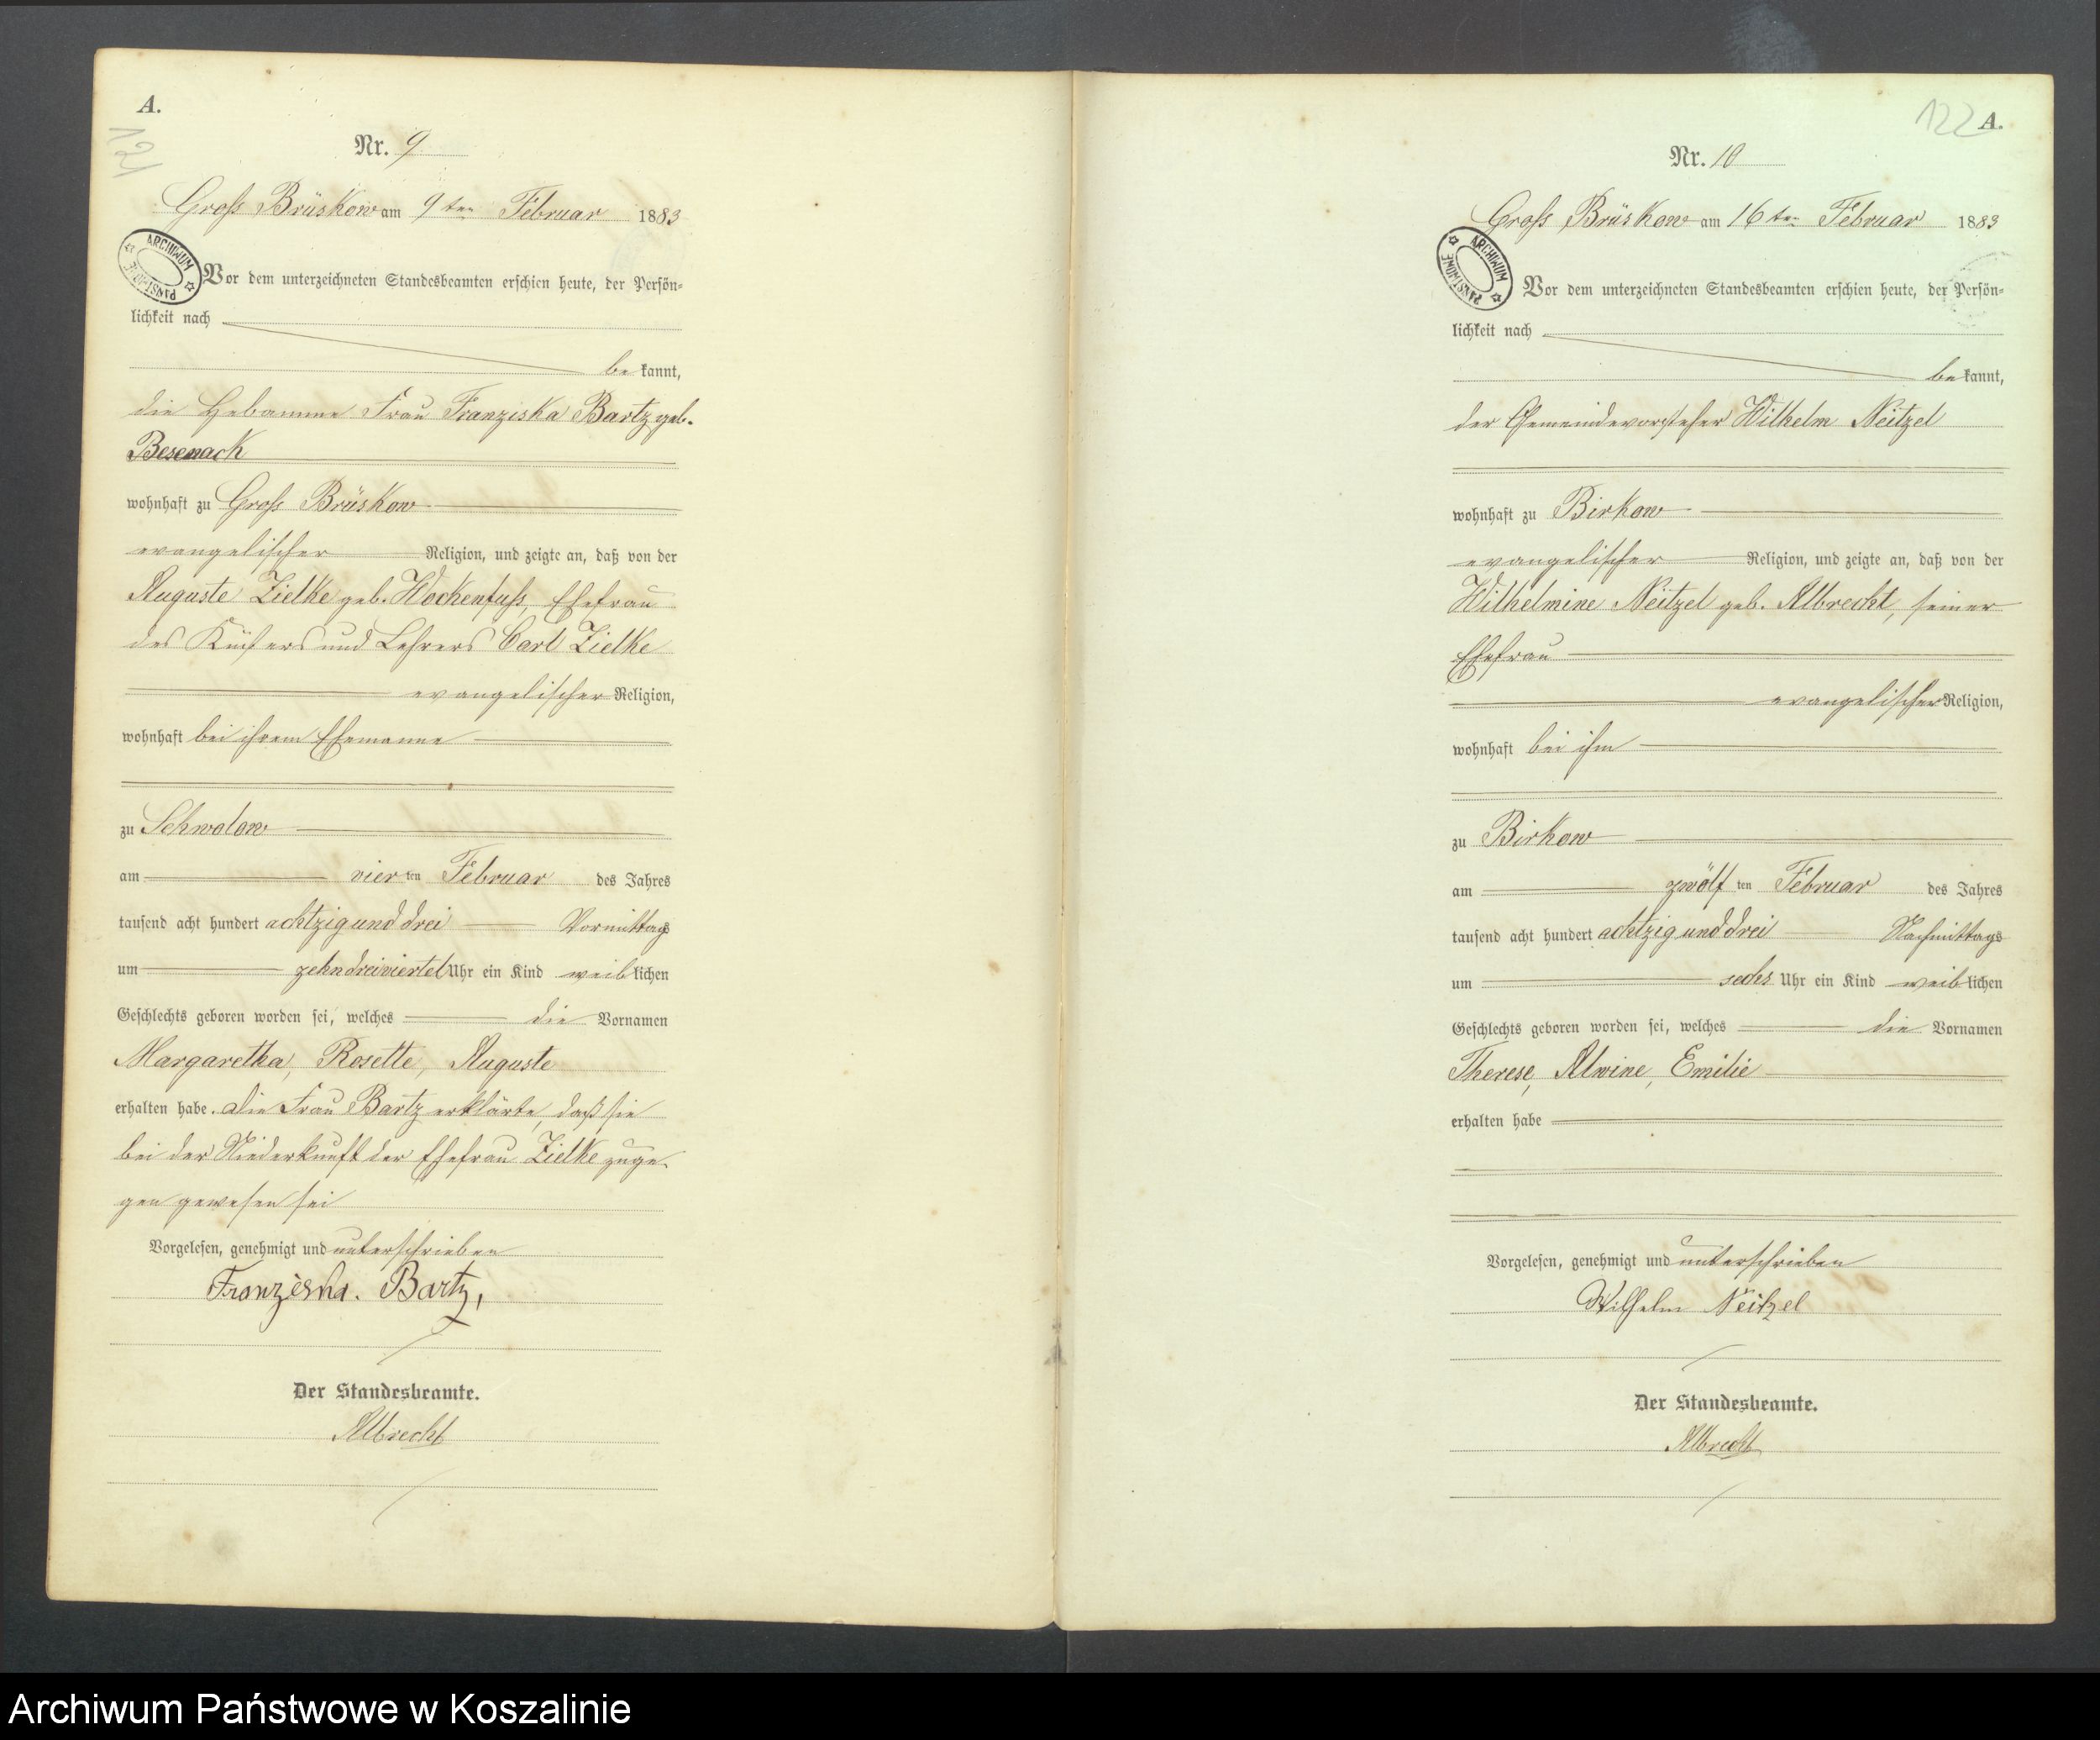 A.
121
Nr. 9
Gross Brüskow am 9ten Februar 1883
ARCHIWUM PAŃSTWOWE
Vor dem unterzeichneten Standesbeamten erschien heute, der Persön-
lichkeit nach
bekannt,
die Hebamme Frau Franziska Bartz geb.
Besenack
wohnhaft zu Gross Brüskow
evangelischer Religion, und zeigte an, daß von der
Auguste Zielke geb. Hockenfuss, Ehefrau
des Küsters und Lehrers Carl Zielke
evangelischer Religion,
wohnhaft bei ihrem Ehemanne
zu Schwolow
am vierten Februar des Jahres
tausend acht hundert achtzig und drei Vormittags
um zehn dreiviertel Uhr ein Kind weiblichen
Geschlechts geboren worden sei, welches die Vornamen
Margaretha, Rosette, Auguste
erhalten habe. Die Frau Bartz erklärte, daß sie
bei der Niederkunft der Ehefrau Zielke zuge-
gen gewesen sei
Vorgelesen, genehmigt und unterschrieben
Franziska. Bartz,
Der Standesbeamte.
Albrecht
122 A.
Nr. 10
Gross Brüskow am 16ten Februar 1883
ARCHIWUM PAŃSTWOWE
Vor dem unterzeichneten Standesbeamten erschien heute, der Persön-
lichkeit nach
bekannt,
der Gemeindevorsteher Wilhelm Neitzel
wohnhaft zu Birkow
evangelischer Religion, und zeigte an, daß von der
Wilhelmine Neitzel geb. Albrecht, seiner
Ehefrau
evangelischer Religion,
wohnhaft bei ihm
zu Birkow
am zwölften Februar des Jahres
tausend acht hundert achtzig und drei Nachmittags
um sechs Uhr ein Kind weiblichen
Geschlechts geboren worden sei, welches die Vornamen
Therese, Alwine, Emilie
erhalten habe
Vorgelesen, genehmigt und unterschrieben
Wilhelm Neitzel
Der Standesbeamte.
Albrecht
Archiwum Państwowe w Koszalinie